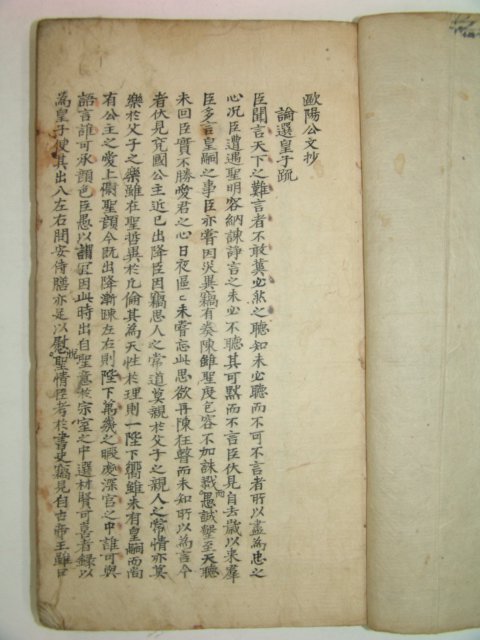 歐陽公文抄
論選皇子疏
臣聞言天下之難言者不敢冀必然之聽知未必聽而不可不言者所以盡為忠之
心况臣遭遇聖明容納諫諍言之未必不聽其可默而不言臣伏見自去歲以来羣
臣多言皇嗣之事臣亦嘗因災異竊有奏陳雖聖度包容不加誅戮而愚誠懇至天聽
未回臣實不勝愛君之心日夜區〻未嘗忘此思欲再陳狂瞽而未知所以為言今
者伏見兖國公主近已出降臣因竊思人之常道莫親於父子之親人之常情亦莫
樂於父子之樂雖在聖哲異於凡倫其為天性於理則一陛下嚮雖未有皇嗣而尚
有公主之愛上慰聖顔今既出降漸踈左右則陛下萬幾之暇處深宮之中誰可與
語言誰可承顔色臣愚以謂宜因此時出自聖意於宗室之中選材賢可喜者録以
為皇子使其出入左右問安侍膳亦足以慰悅聖情臣考於書史竊見自古帝王雖曰